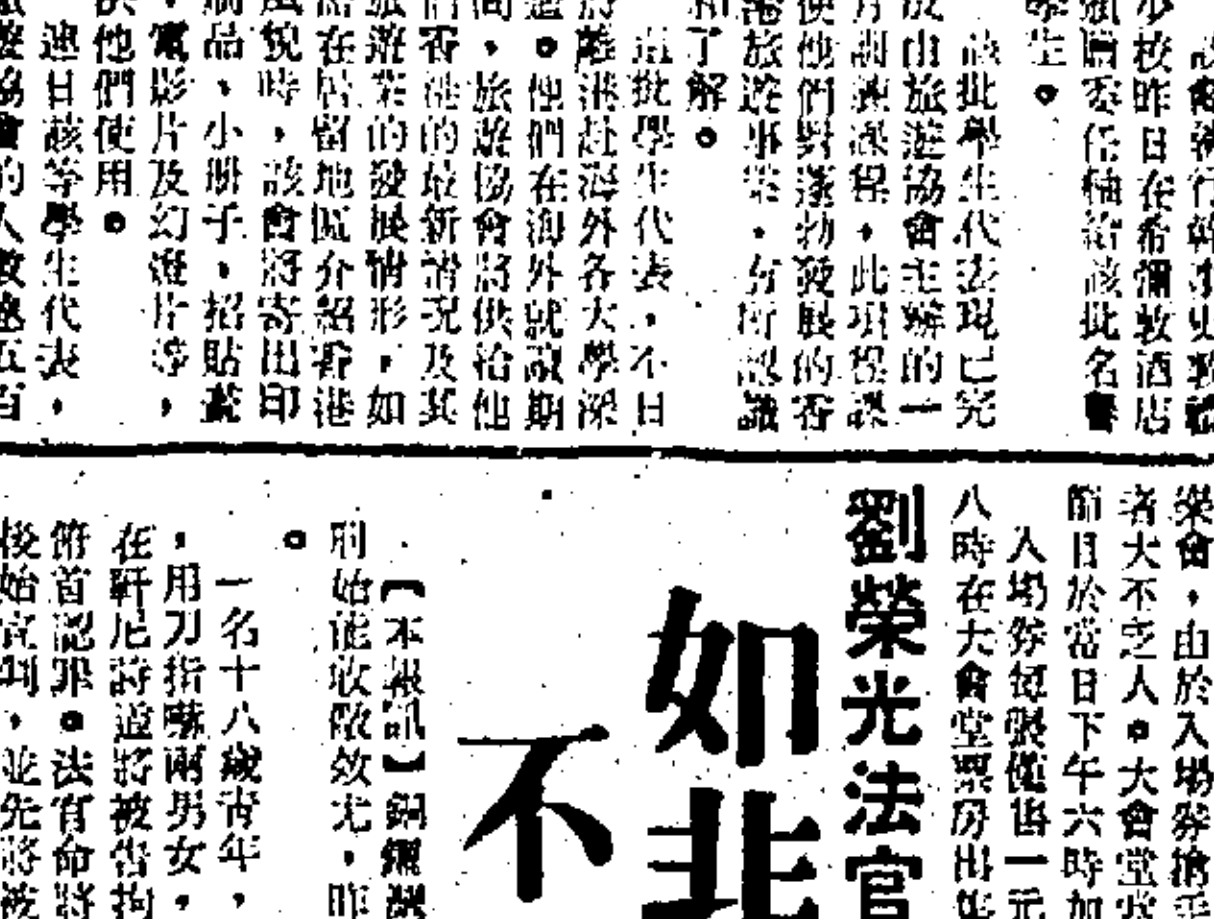 少校昨日在希爾敦酒店
頒贈委任軸給該批名譽
學生。
該批學生代表現已完
成由旅遊協會主辦的一
月訓練課程,此項程課
使他們對蓬勃發展的香
港旅遊事業,有所認識
和了解。
這批學生代表,不日
將離港赴海外各大學深
造。他們在海外就讀期
間,旅遊協會將供給他
們香港的最新情況及其
旅遊業的發展情形,如
在居留地區介紹香港
風貌時,該會將寄出印
刷品、小册子、招貼畫
、電影片及幻燈片等,
供他們使用。
連日該等學生代表,
旅遊協會的人數逾五百
樂會,由於入場券
者大不乏人。大會堂
節目於當日下午六時
入場券每張僅售一元
八時在大會堂票房出
劉榮光法官
如非
不
【本報訊】銅鑼
刑始能收儆效尤,昨
。
一名十八歲青年,
,用刀指嚇兩男女,
在軒尼詩道將被告拘
俯首認罪。法官命將
後始宣判,並先將被